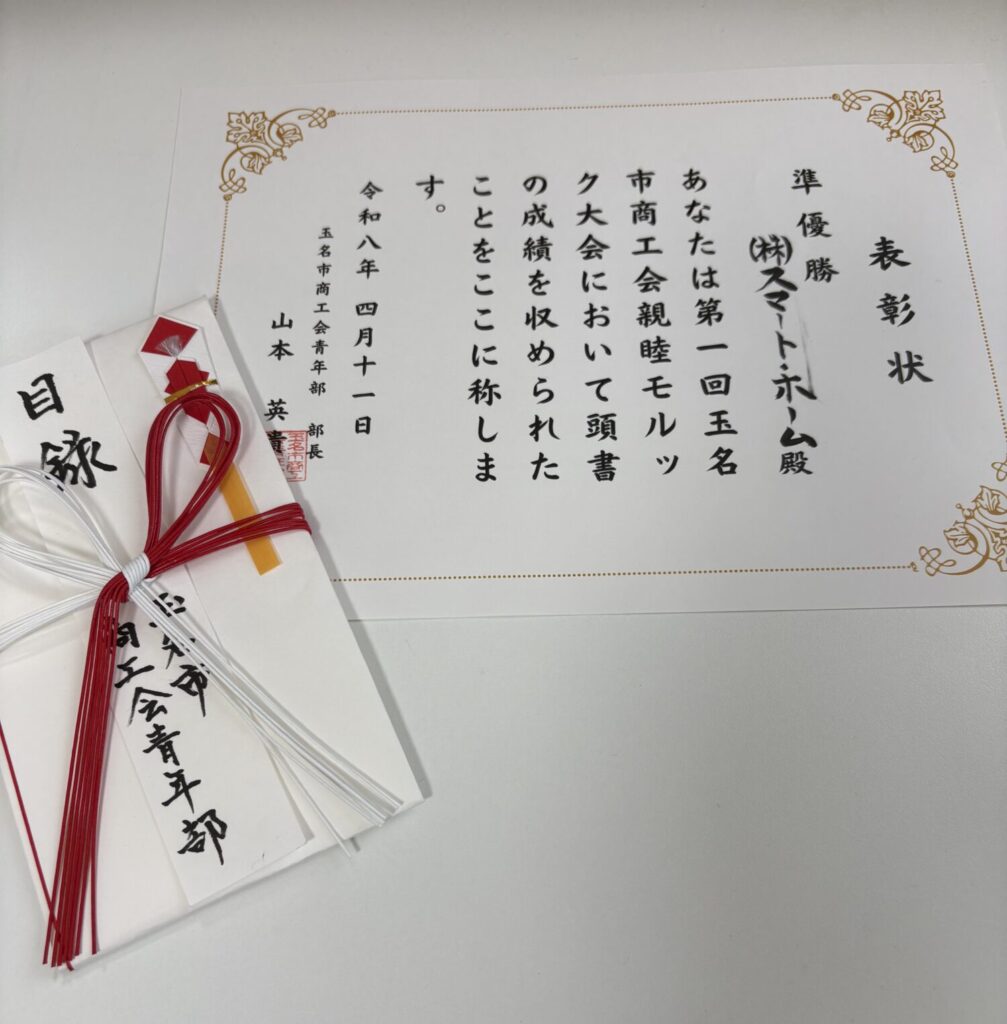 表彰状
準優勝
㈱スマート・ホーム殿
あなたは第一回玉名
市商工会親睦モルッ
ク大会において頭書
の成績を収められた
ことをここに称しま
す。
令和八年 四月十一日
玉名市商工会青年部 部長
山本 英貴
目録
玉名市
商工会青年部